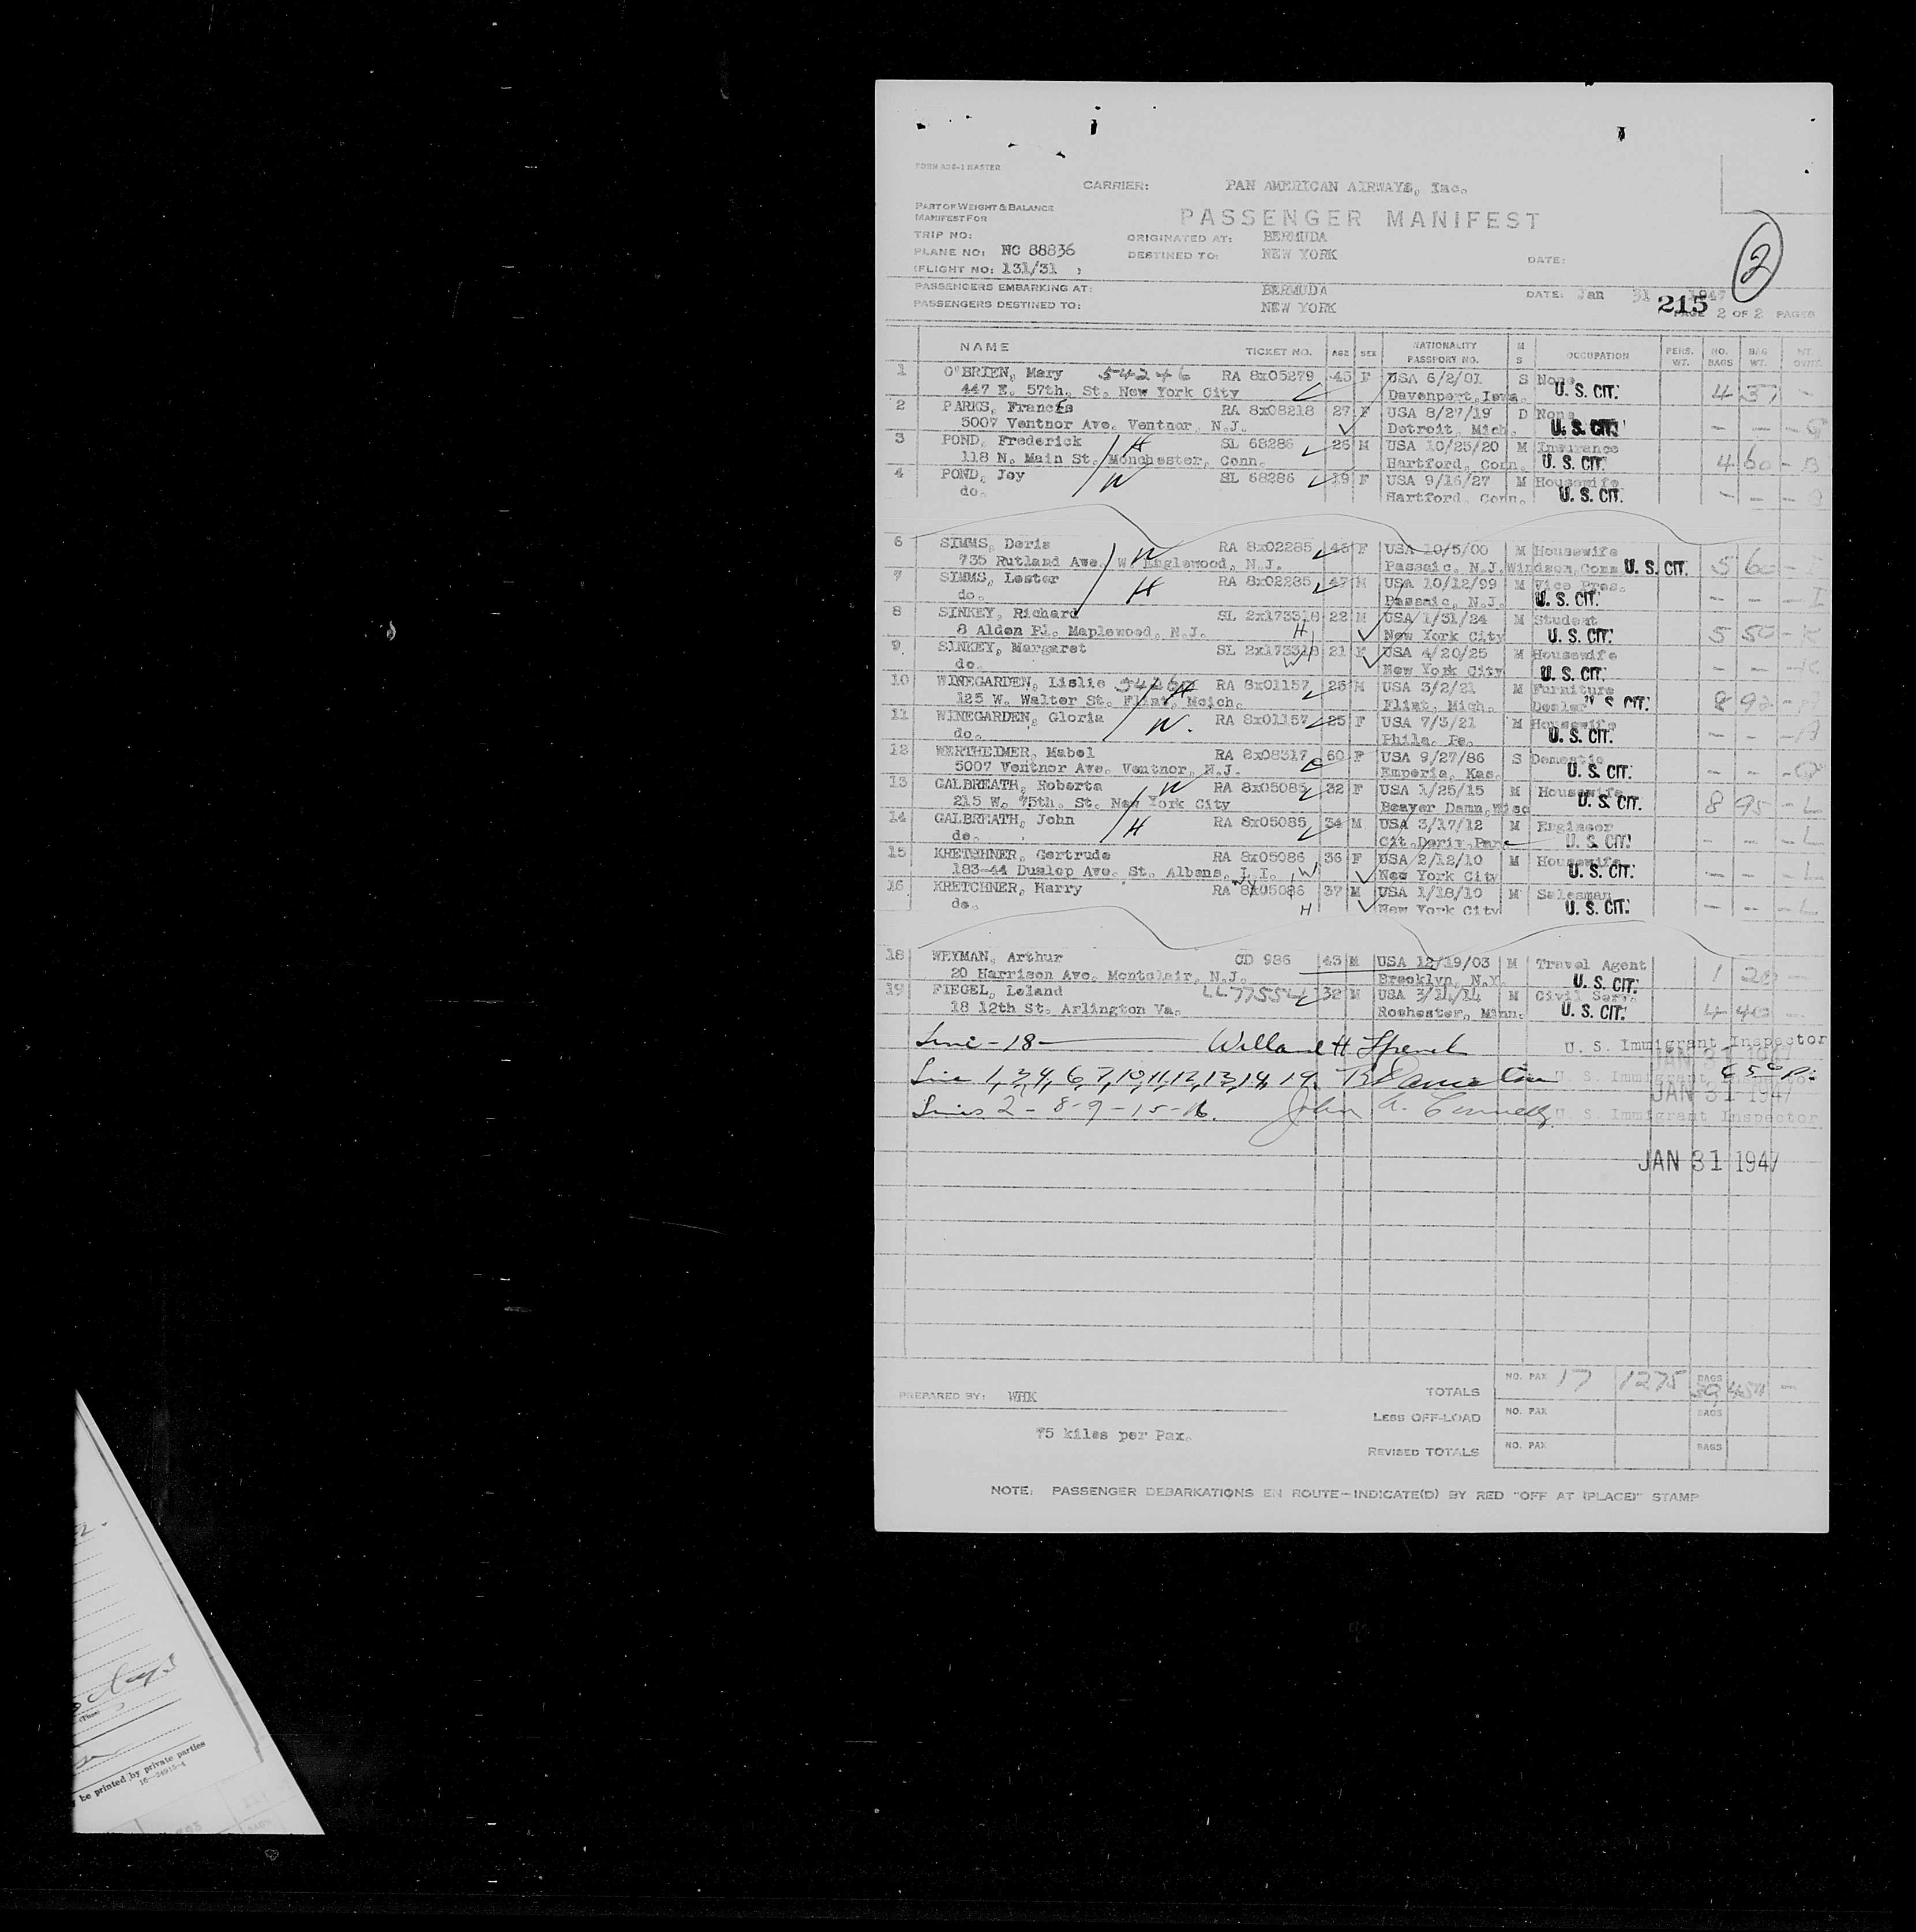 FORM A26-1 MASTER
CARRIER: PAN AMERICAN AIRWAYS, Inc.
PART OF WEIGHT & BALANCE
MANIFEST FOR
PASSENGER MANIFEST
TRIP NO: ORIGINATED AT: BERMUDA
PLANE NO: NC 88836 DESTINED TO: NEW YORK DATE:
(FLIGHT NO: 131/31 )
PASSENGERS EMBARKING AT: BERMUDA DATE: Jan 31 1947
PASSENGERS DESTINED TO: NEW YORK 215 PAGE 2 OF 2 PAGES
2
NAME TICKET NO. AGE SEX NATIONALITY PASSPORT NO. M S OCCUPATION PERS. WT. NO. BAGS BAG WT.
1 O'BRIEN, Mary 54246 RA 8x05279 45 F USA 6/2/01 S None
447 E. 57th. St. New York City Davenport, Iowa. U. S. CIT. 4 37 -
2 PARKS, Frances RA 8x08218 27 F USA 8/27/19 D None
5007 Ventnor Ave. Ventnor, N.J. Detroit, Mich. U. S. CIT. - - -
3 POND, Frederick H SL 68286 26 M USA 10/25/20 M Insurance
118 N. Main St. Monchester, Conn. Hartford, Conn. U. S. CIT. 4 60 - B
4 POND, Joy W SL 68286 19 F USA 9/16/27 M Housewife
do. Hartford, Conn. U. S. CIT. - - -
6 SIMMS, Doris W RA 8x02285 46 F USA 10/5/00 M Housewife
735 Rutland Ave. W Englewood, N.J. Passaic, N.J. Windson, Conn. U. S. CIT. 5 60 -
7 SIMMS, Lester H RA 8x02285 47 M USA 10/12/99 M Vice Pres.
do. Passaic, N.J. U. S. CIT. - - - I
8 SINKEY, Richard SL 2x173318 22 M USA 1/31/24 M Student
8 Alden Pl. Maplewood, N.J. H New York City U. S. CIT. 5 50 - K
9. SINKEY, Margaret SL 2x173318 21 F USA 4/20/25 M Housewife
do. W New York City U. S. CIT. - - - K
10 WINEGARDEN, Lislie H RA 8x01157 25 M USA 3/2/21 M Furniture
125 W. Walter St. Flint, Mcich. Flint, Mich. Dealer U. S. CIT. 8 92 -
11 WINEGARDEN, Gloria W. RA 8x01157 25 F USA 7/3/21 M Housewife
do. Phila. Pa. U. S. CIT. - - -
12 WERTHEIMER, Mabel RA 8x08317 60 F USA 9/27/86 S Domestic
5007 Ventnor Ave. Ventnor, N.J. Emporia, Kas. U. S. CIT. - - -
13 GALBREATH, Roberta W RA 8x05085 32 F USA 1/25/15 M Housewife
215 W. 75th. St. New York City Beaver Damn, Wisc U. S. CIT. 8 95 - L
14 GALBREATH, John H RA 8x05085 34 M USA 3/17/12 M Engineer
do. Cit. Deriv. U. S. CIT. - L
15 KRETCHNER, Gertrude RA 8x05086 36 F USA 2/12/10 M Housewife
183-44 Dunlop Ave. St. Albans, L.I. W New York City U. S. CIT. - - - L
16 KRETCHNER, Harry RA 8x05086 37 M USA 1/18/10 M Salesman
do. H New York City U. S. CIT. - - - L
18 WEYMAN, Arthur CD 986 43 M USA 12/19/03 M Travel Agent
20 Harrison Ave. Montclair, N.J. Brooklyn, N.Y. U. S. CIT. 1 20 -
19 FIEGEL, Leland LL 77554 32 M USA 3/11/14 M Civil Serv.
18 12th St. Arlington Va. Rochester, Minn. U. S. CIT. 4 40 -
Line - 18 - U. S. Immigrant Inspector
JAN 31 1947
Line 1, 3, 4, 6, 7, 10, 11, 12, 13, 14, 19. U. S. Immigrant Inspector
JAN 31 1947
Lines 2 - 8-9-15-16. John A. Connelly U. S. Immigrant Inspector
JAN 31 1947
NO. PAX 17 1275 BAGS 39
PREPARED BY: WHK TOTALS
LESS OFF-LOAD NO. PAX BAGS
75 kilos per Pax.
REVISED TOTALS NO. PAX BAGS
NOTE: PASSENGER DEBARKATIONS EN ROUTE-INDICATE(D) BY RED "OFF AT (PLACE)" STAMP
days
(Time)
be printed by private parties
16-24915-4